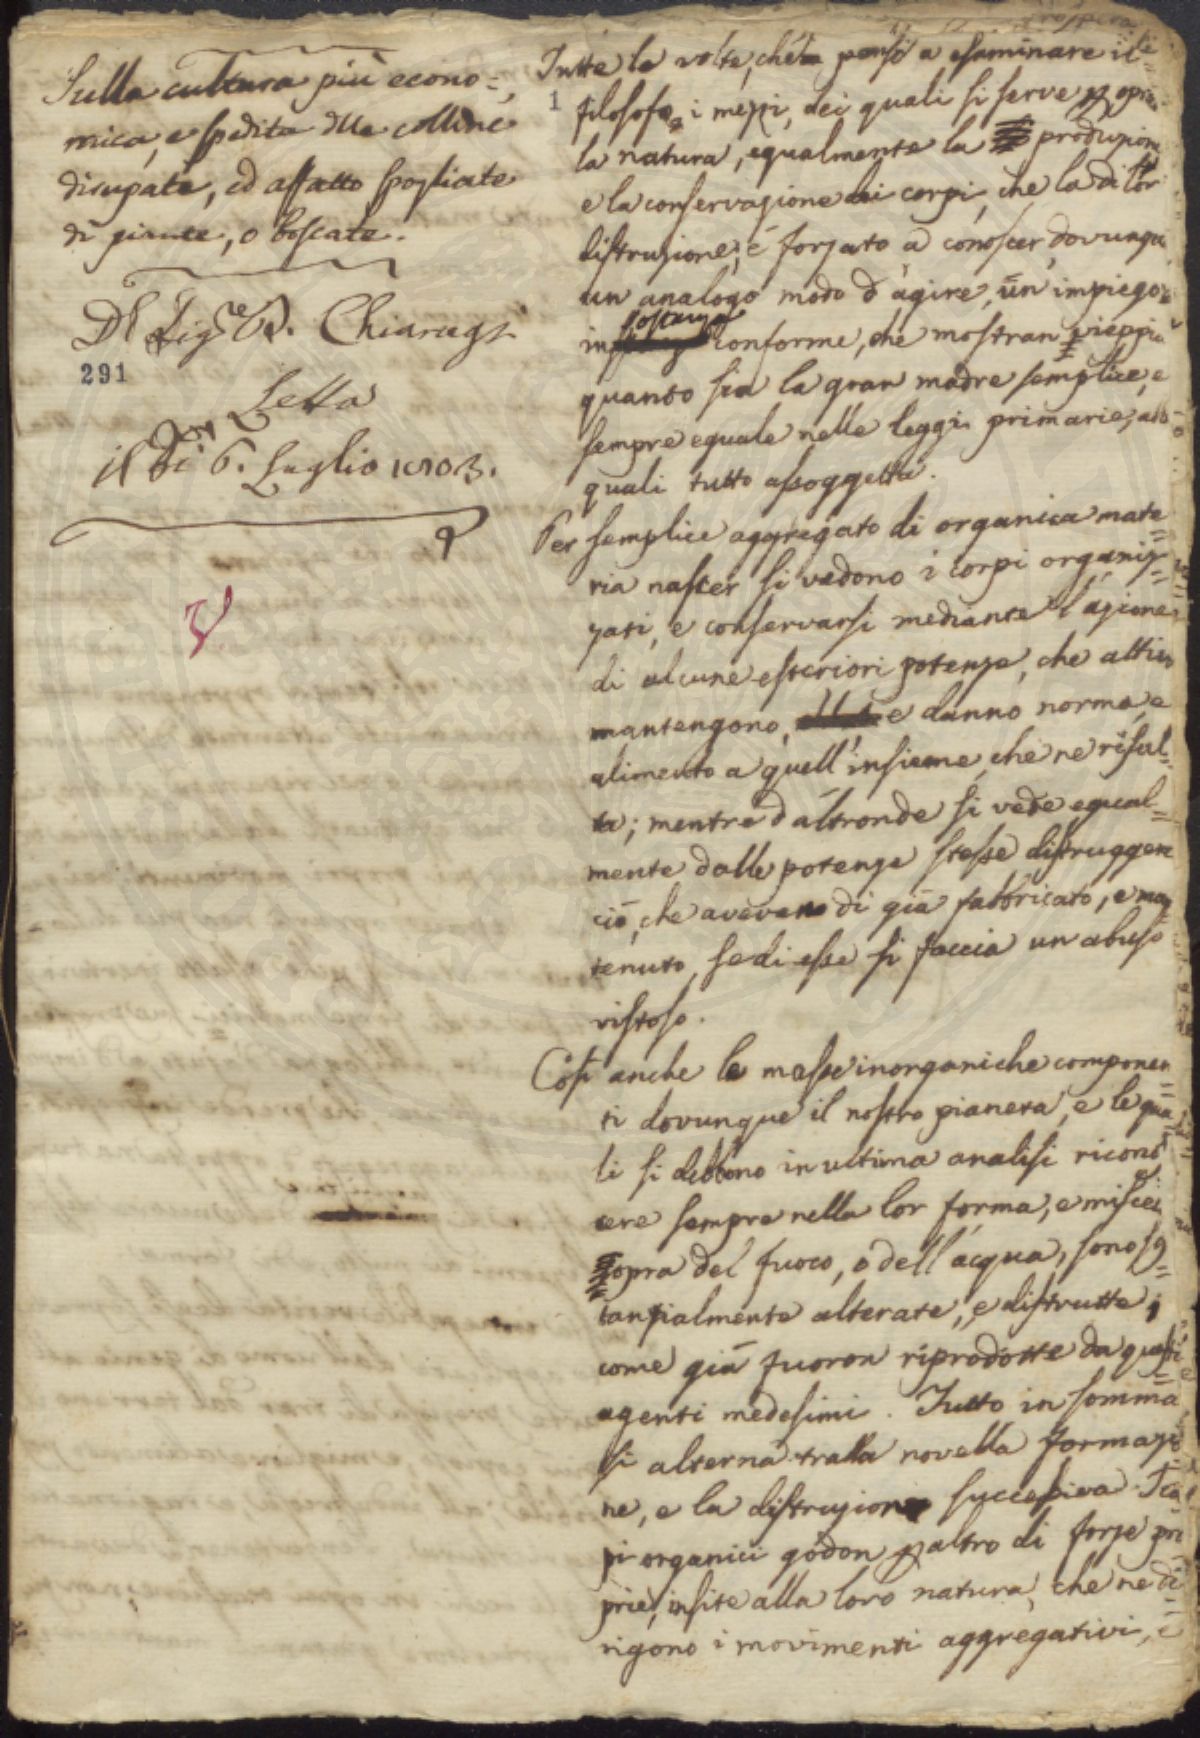 Sulla cultura più econo=
mica, e spedita delle colline
dirupate, ed affatto spogliate
di piante, o boscate.
Del Sig.re D. Chiarugi
291
Letta
il dì 6. Luglio 1803.
1
Tutte le volte, che a esaminare il
filosofo, i mezzi, dei quali si serve
la natura, egualmente la produzione
e la conservazione dei corpi, che la di lor
distruzione; è forzato a conoscer dovunque
un analogo modo d'agire, un impiego
in sostanza conforme, che mostran vieppiù
quanto sia la gran madre semplice, e
sempre eguale nelle leggi primarie, alle
quali tutto assoggetta.
Per semplice aggregato di organica mate=
ria nascer si vedono i corpi organiz=
zati, e conservarsi mediante l'azione
di alcune esteriori potenze, che attivi
mantengono, e danno norma, e
alimento a quell'insieme, che ne risul=
ta; mentre d'altronde si vede egual=
mente dalle potenze stesse distruggere
ciò, che avevano di già fabbricato, e man
tenuto, se di esse si faccia un abuso
vistoso.
Così anche le masse inorganiche componen=
ti dovunque il nostro pianeta, e le qua=
li si debbono in ultima analisi ricono
scere sempre nella lor forma, e miscela
opra del fuoco, o dell'acqua, sono so=
stanzialmente alterate, e distrutte,
come già furon riprodotte da questi
agenti medesimi. Tutto in somma
si alterna tralla novella formazio
ne, e la distruzione successiva. I cor
pi organici godon per altro di forze pro
prie, insite alla loro natura, che ne di=
rigono i movimenti aggregativi, e